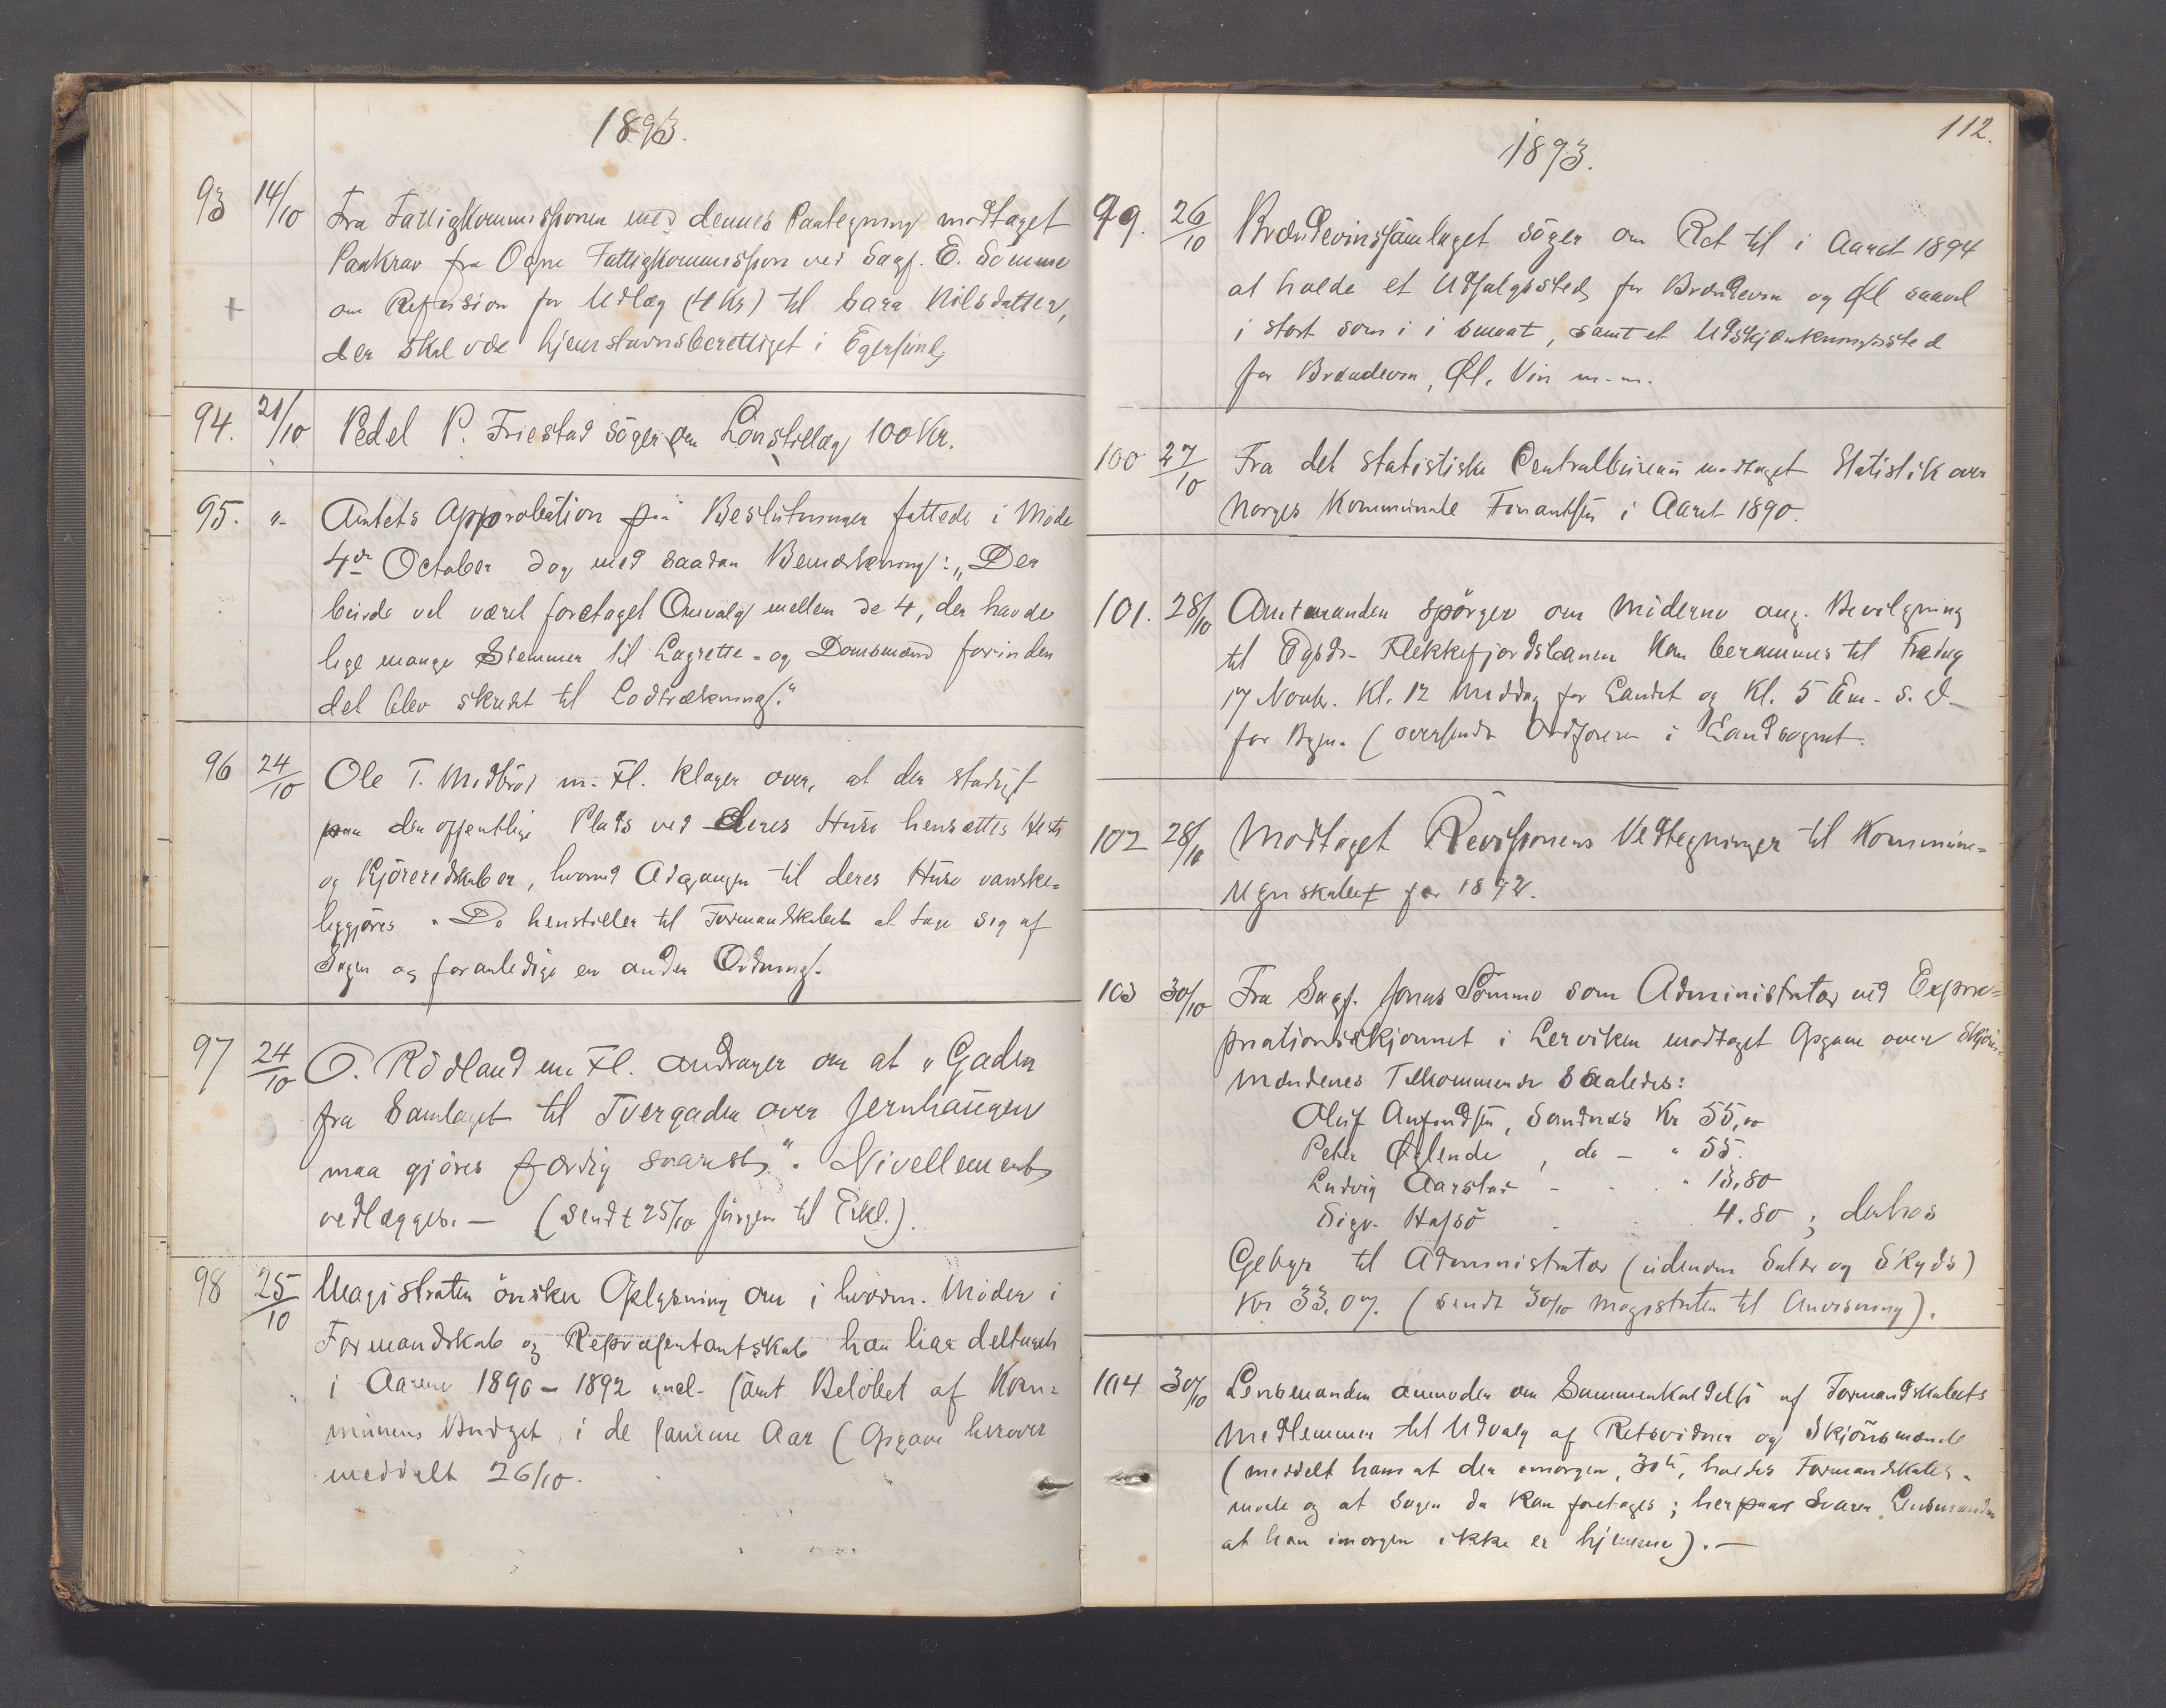 1893.
93 14/10 Fra Fattigkommissionen med dennes Paategning modtaget
Paakrav fra Ogne Fattigkommission ved Sagf. E. Sømme
om Refusion for Udlæg (4 Kr) til Sara Nilsdatter,
der skal være hjemstavnsberettiget i Egersund,
94. 21/10 Pedel P. Friestad söger om Lönstillæg 100 Kr.
95. "- Amtets Approbation på Beslutninger fattede i Møde
4de October dog med saadan Bemærkning: „Der
burde vel været foretaget Omvalg mellem de 4, der havde
lige mange Stemmer til Lagrette- og Domsmænd forinden
det blev skredet til Lodtrækning."
96 24/10 Ole T. Midbrød m. Fl. klager over, at der stadigt
paa den offentlige Plads ved deres Huse hensættes Heste
og Kjöreredskaber, hvorved Adgangen til deres Huse vanske-
liggjöres. De henstiller til Formandskabet at tage sig af
Sagen og foranledige en anden Ordning.
97 24/10 O. Rödland m. Fl. andrager om at „Gaden
fra Samlaget til Tvergaden over Jernhaugen
maa gjöres færdig snarest". Nivellement
vedlægges. — (Sendt 25/10 Jürgens til Erkl.).
98 25/10 Magistraten önsker Oplysning om i hvorm. Møder i
Formandskab og Repræsentantskab han har deltaget
i Aarene 1890 – 1892 incl. samt Beløbet af Kom-
munens Budget i de samme Aar (Opgave herover
meddelt 26/10.
112.
1893.
99. 26/10 Brændevinssamlaget söger om Ret til i Aaret 1894
at holde et Udsalgssted for Brændevin og Øl saavel
i stort som i i smaat, samt et Udskjænkningssted
for Brændevin, Øl, Vin m.m.
100 27/10 Fra det statistiske Centralbureau modtaget Statistik over
Norges Kommunale Finantser i Aaret 1890.
101. 28/10 Amtmanden spörger om Möderne ang. Bevilgning
til Egsds- Flekkefjordsbanen kan berammes til Fredag
17 Novbr. Kl. 12 Middag for Landet og Kl. 5 Em. s. d.
for Byen. (oversendt Ordføreren i Landsognet.
102 28/10 Modtaget Revisionens Vedtegninger til Kommune-
regnskabet for 1892.
103 30/10 Fra Sagf. Jonas Sömme som Administrator ved Expro-
priationsskjönnet i Lerviken modtaget Opgave over Skjöns-
mændenes Tilkommende saaledes:
Oluf Aufindsen, Sandnæs Kr 55,00
Peter Ørlende, do — " 55.
Ludvig Aarstad - . . " 13,80
Sigv. Hafsö - 4.80 ; derhos
Gebyr til Administrator (udenom Salær og Skyds)
Kr 33,07. (sendt 30/10 Magistraten til Anvisning).
104 30/10 Lensmanden anmoder om Sammenkaldelse af Formandskabets
Medlemmer til Udvalg af Retsvidner og Skjönsmænd
(meddelt ham at der imorgen, 30te, holdes Formandskabs-
møde og at Sagen da kan foretages; herpaa svarer Lensmanden
at han imorgen ikke er hjemme). —